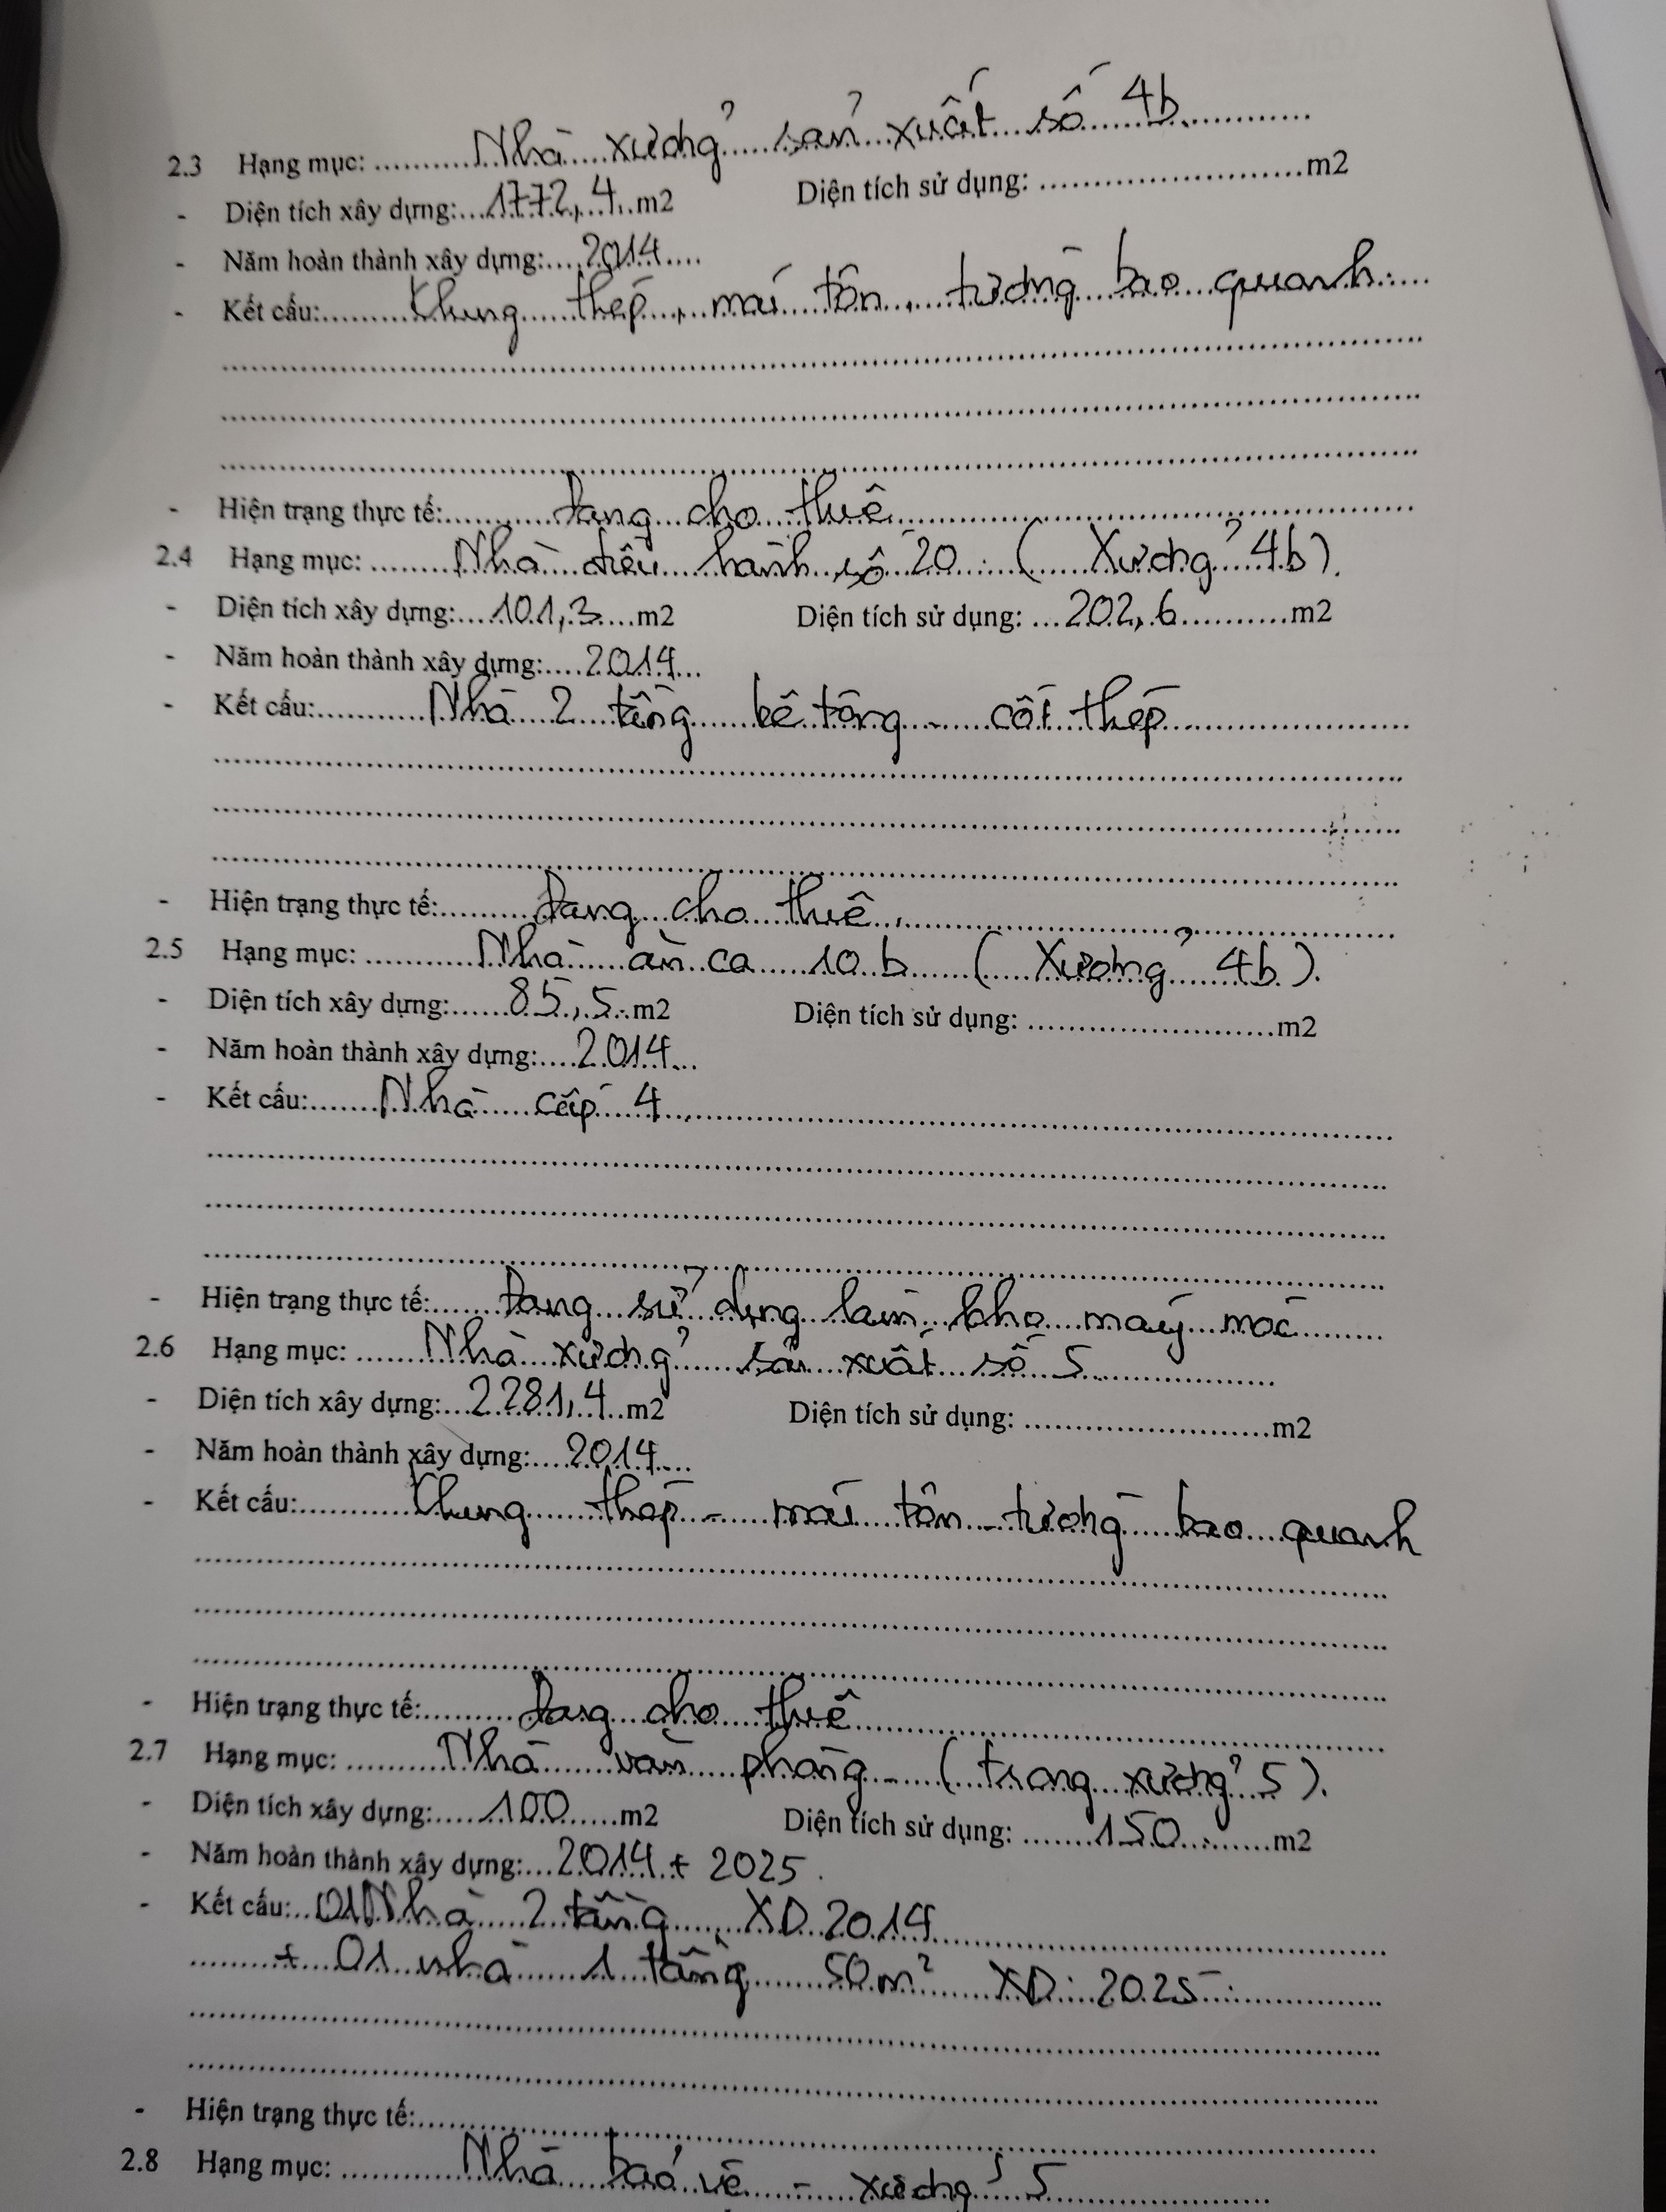 2.3 Hạng mục: Nhà xưởng sản xuất số 4b
- Diện tích xây dựng: 1772,4 m2 Diện tích sử dụng: m2
- Năm hoàn thành xây dựng: 2014
- Kết cấu: Khung thép, mái tôn, tường bao quanh
- Hiện trạng thực tế: Đang cho thuê
2.4 Hạng mục: Nhà điều hành số 20 (Xưởng 4b).
- Diện tích xây dựng: 101,3 m2 Diện tích sử dụng: 202,6 m2
- Năm hoàn thành xây dựng: 2014
- Kết cấu: Nhà 2 tầng bê tông - cốt thép
- Hiện trạng thực tế: Đang cho thuê.
2.5 Hạng mục: Nhà ăn ca 10b (Xưởng 4b).
- Diện tích xây dựng: 85,5 m2 Diện tích sử dụng: m2
- Năm hoàn thành xây dựng: 2014
- Kết cấu: Nhà cấp 4
- Hiện trạng thực tế: Đang sử dụng làm kho máy móc
2.6 Hạng mục: Nhà xưởng sản xuất số 5
- Diện tích xây dựng: 2281,4 m2 Diện tích sử dụng: m2
- Năm hoàn thành xây dựng: 2014
- Kết cấu: Khung thép - mái tôn - tường bao quanh
- Hiện trạng thực tế: Đang cho thuê
2.7 Hạng mục: Nhà văn phòng - (trong xưởng 5).
- Diện tích xây dựng: 100 m2 Diện tích sử dụng: 150 m2
- Năm hoàn thành xây dựng: 2014 + 2025.
- Kết cấu: 01 Nhà 2 tầng, XD 2014
+ 01 nhà 1 tầng 50m² XD: 2025
- Hiện trạng thực tế:
2.8 Hạng mục: Nhà bảo vệ - xưởng 5